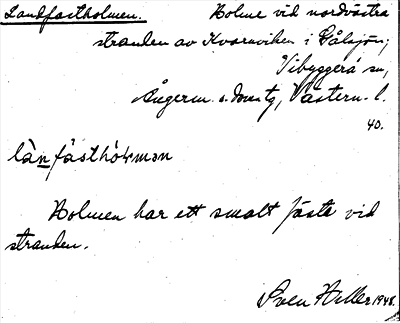 Landfastholmen. Holme vid nordvästra
stranden av Kvarnviken i Gålsjön,
Vibyggerå sn,
Ångerm. s. domstg, Västern. l.
40.
lànfàsthólmən
Holmen har ett smalt fäste vid
stranden.
Sven Hiller 1948.